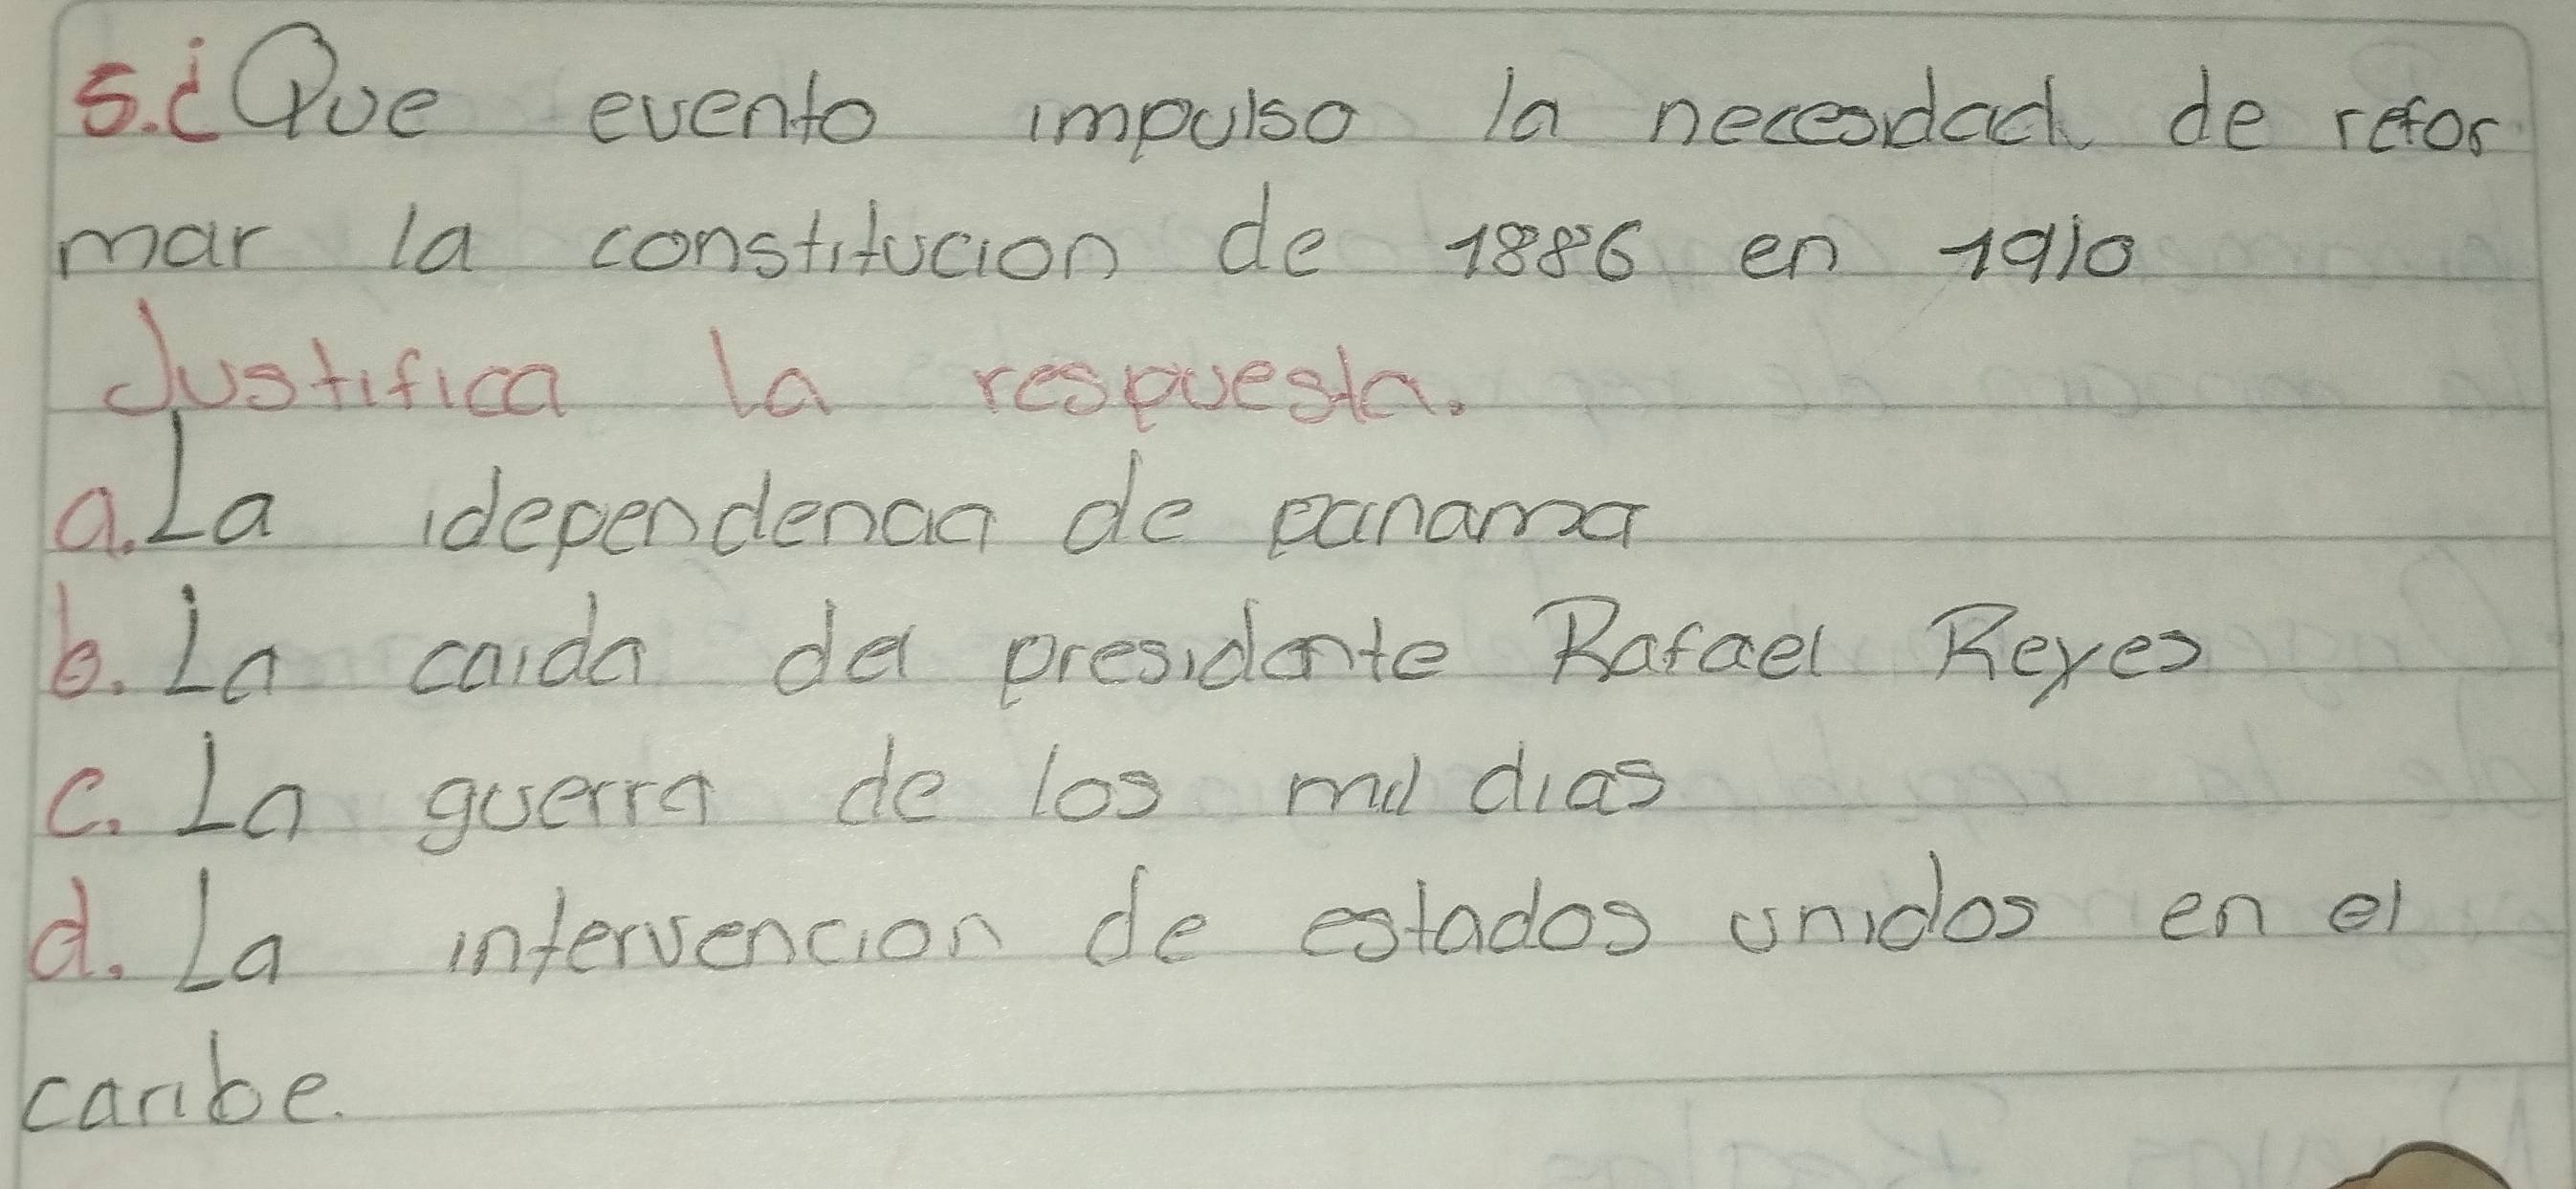 5.¿Que evento impulso la necesidad de refor
mar la constitucion de 1886 en 1910
Justifica la respuesta.
a. La idependencia de panama
b. La caida del presidente Rafael Reyes
c. La guerra de los mil dias
d. La intervencion de estados unidos en el
caribe.